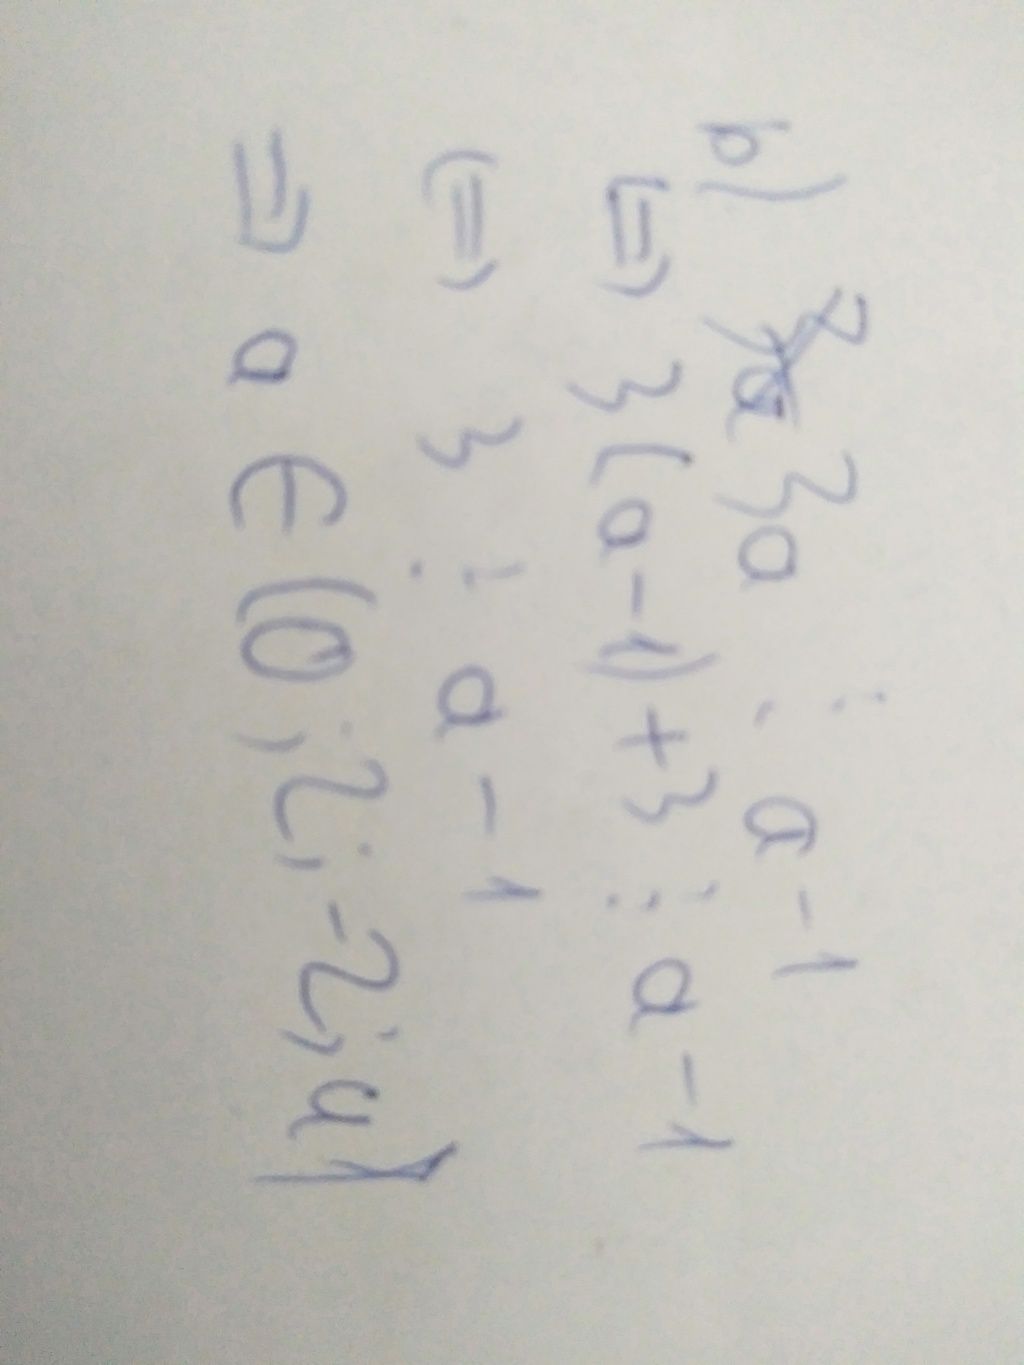 b) 3a ⋮ a-1
(=) 3(a-1)+3 ⋮ a-1
(=) 3 ⋮ a-1
=) a ∈ (0; 2; -2; 4)